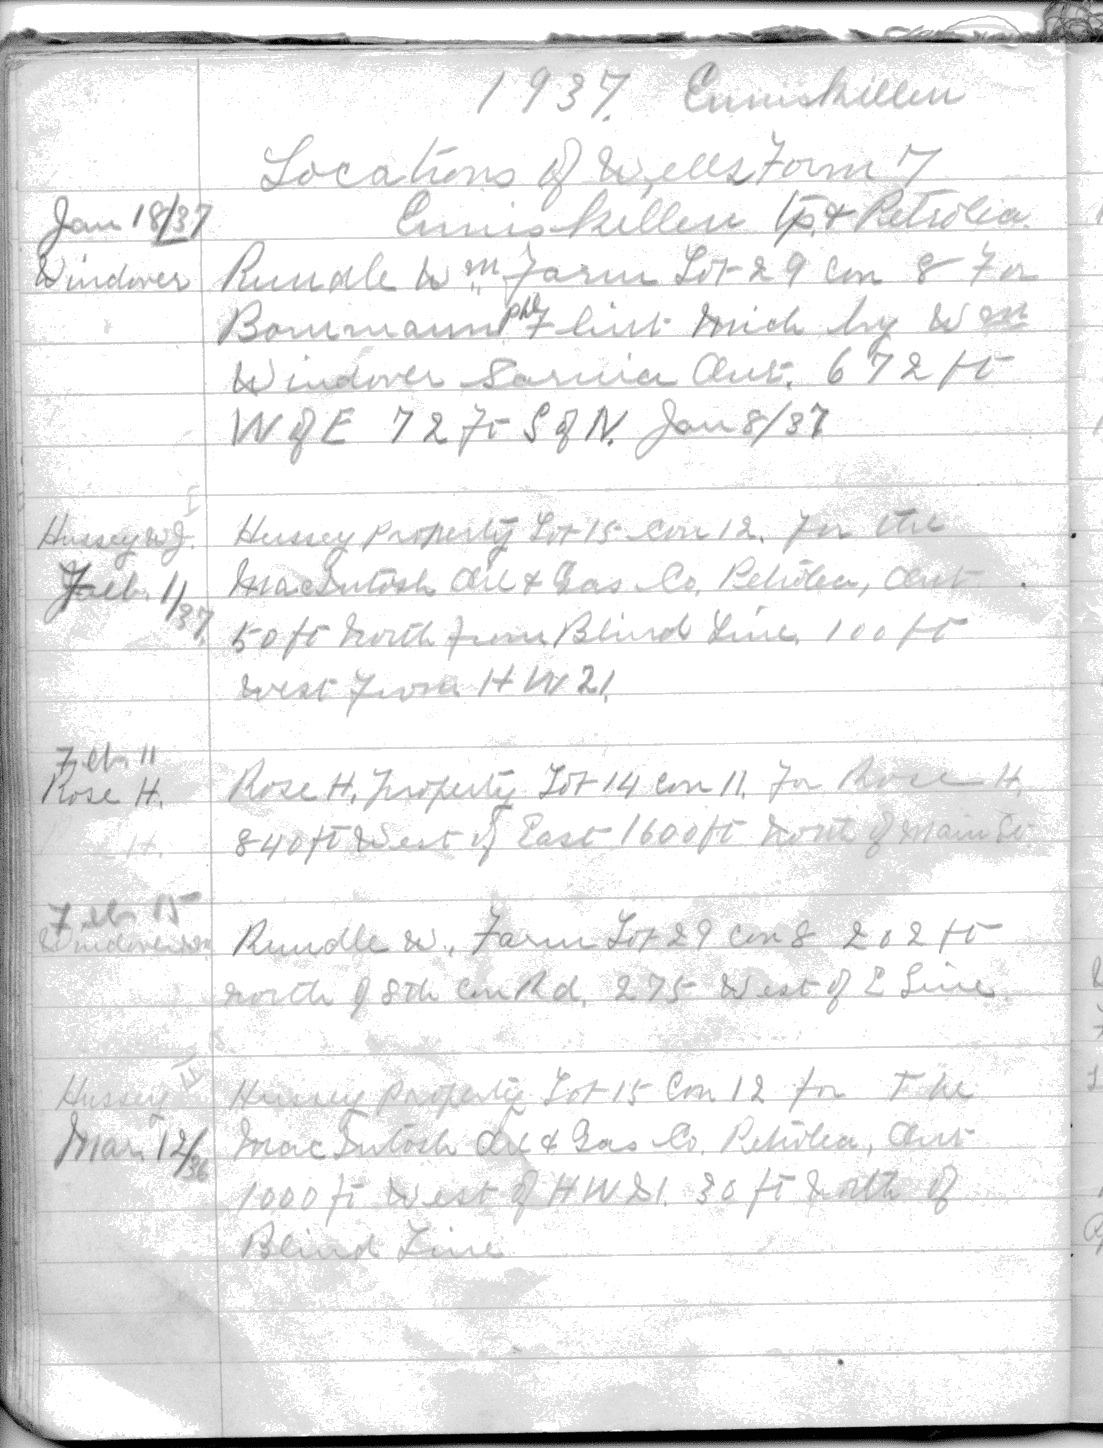 1937. Enniskillen
Locations of Wells Form 7
Jan 18/37 Enniskillen Tp. & Petrolia.
Windover Rundle Wm Farm Lot 29 Con 8 For
Flint Mich by Wm
Windover Sarnia Ont. 672 ft
W of E 72 ft S of N. Jan 8/37
I
Hussey W.J. Hussey Property Lot 15 Con 12. for the
Feb. 11/37 MacIntosh Oil & Gas Co. Petrolea, Ont
50 ft North from Blind Line. 100 ft
West from HW 21.
Feb. 11
Rose H. Rose H. Property Lot 14 Con 11. for Rose H.
H. 840 ft West of East 1600 ft North of Main St
Feb 15
Windover Wm Rundle W. Farm Lot 29 Con 8 202 ft
North of 8th Con Rd. 275 West of E Line.
II
Hussey Hussey Property Lot 15 Con 12 for The
Mar. 12/36 MacIntosh Oil & Gas Co. Petrolea, Ont
1000 ft West of HW 21. 30 ft North of
Blind Line